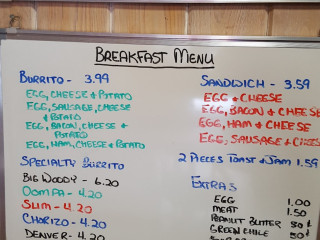 BREAKFAST MENU
BURRITO - 3.99
EGG, CHEESE & POTATO
EGG, SAUSAGE, CHEESE
& POTATO
EGG, BACON, CHEESE &
POTATO
EGG, HAM, CHEESE & POTATO
SPECIALTY BURRITO
BIG WOODY - 6.20
OOMPA - 4.20
SLIM - 4.20
CHORIZO - 4.20
DENVER - 4.20
SANDWICH - 3.59
EGG & CHEESE
EGG, BACON & CHEESE
EGG, HAM & CHEESE
EGG, SAUSAGE & CHEESE
2 PIECES TOAST & JAM 1.59
EXTRAS
EGG 1.00
MEAT 1.50
PEANUT BUTTER 80¢
GREEN CHILE